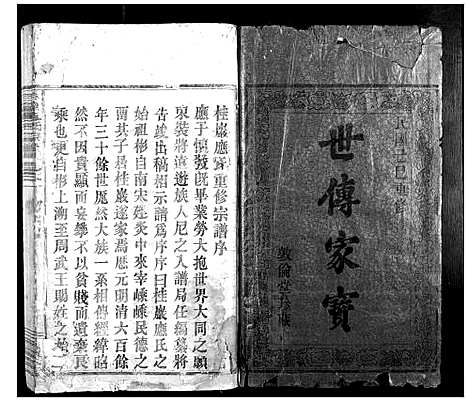 民國己巳重修
世傳家寶
敦倫堂珍藏
桂巖應氏重修宗譜序
應子慎發既畢業勞大抱世界大同之願
束裝將遠遊族人尼之入譜局任編纂將
告竣出稿相示請爲序序曰桂巖應氏之
始祖彬自南宋炎中來宰嵊嵊民德之
而其子居桂巖遂家焉歷元明清六百餘
年三十餘世厖然大族一系相傳經緯昭
然不因貴顯而妄攀不以貧賤而遺棄民
乘也更自彬上溯至周武王賜姓之始二